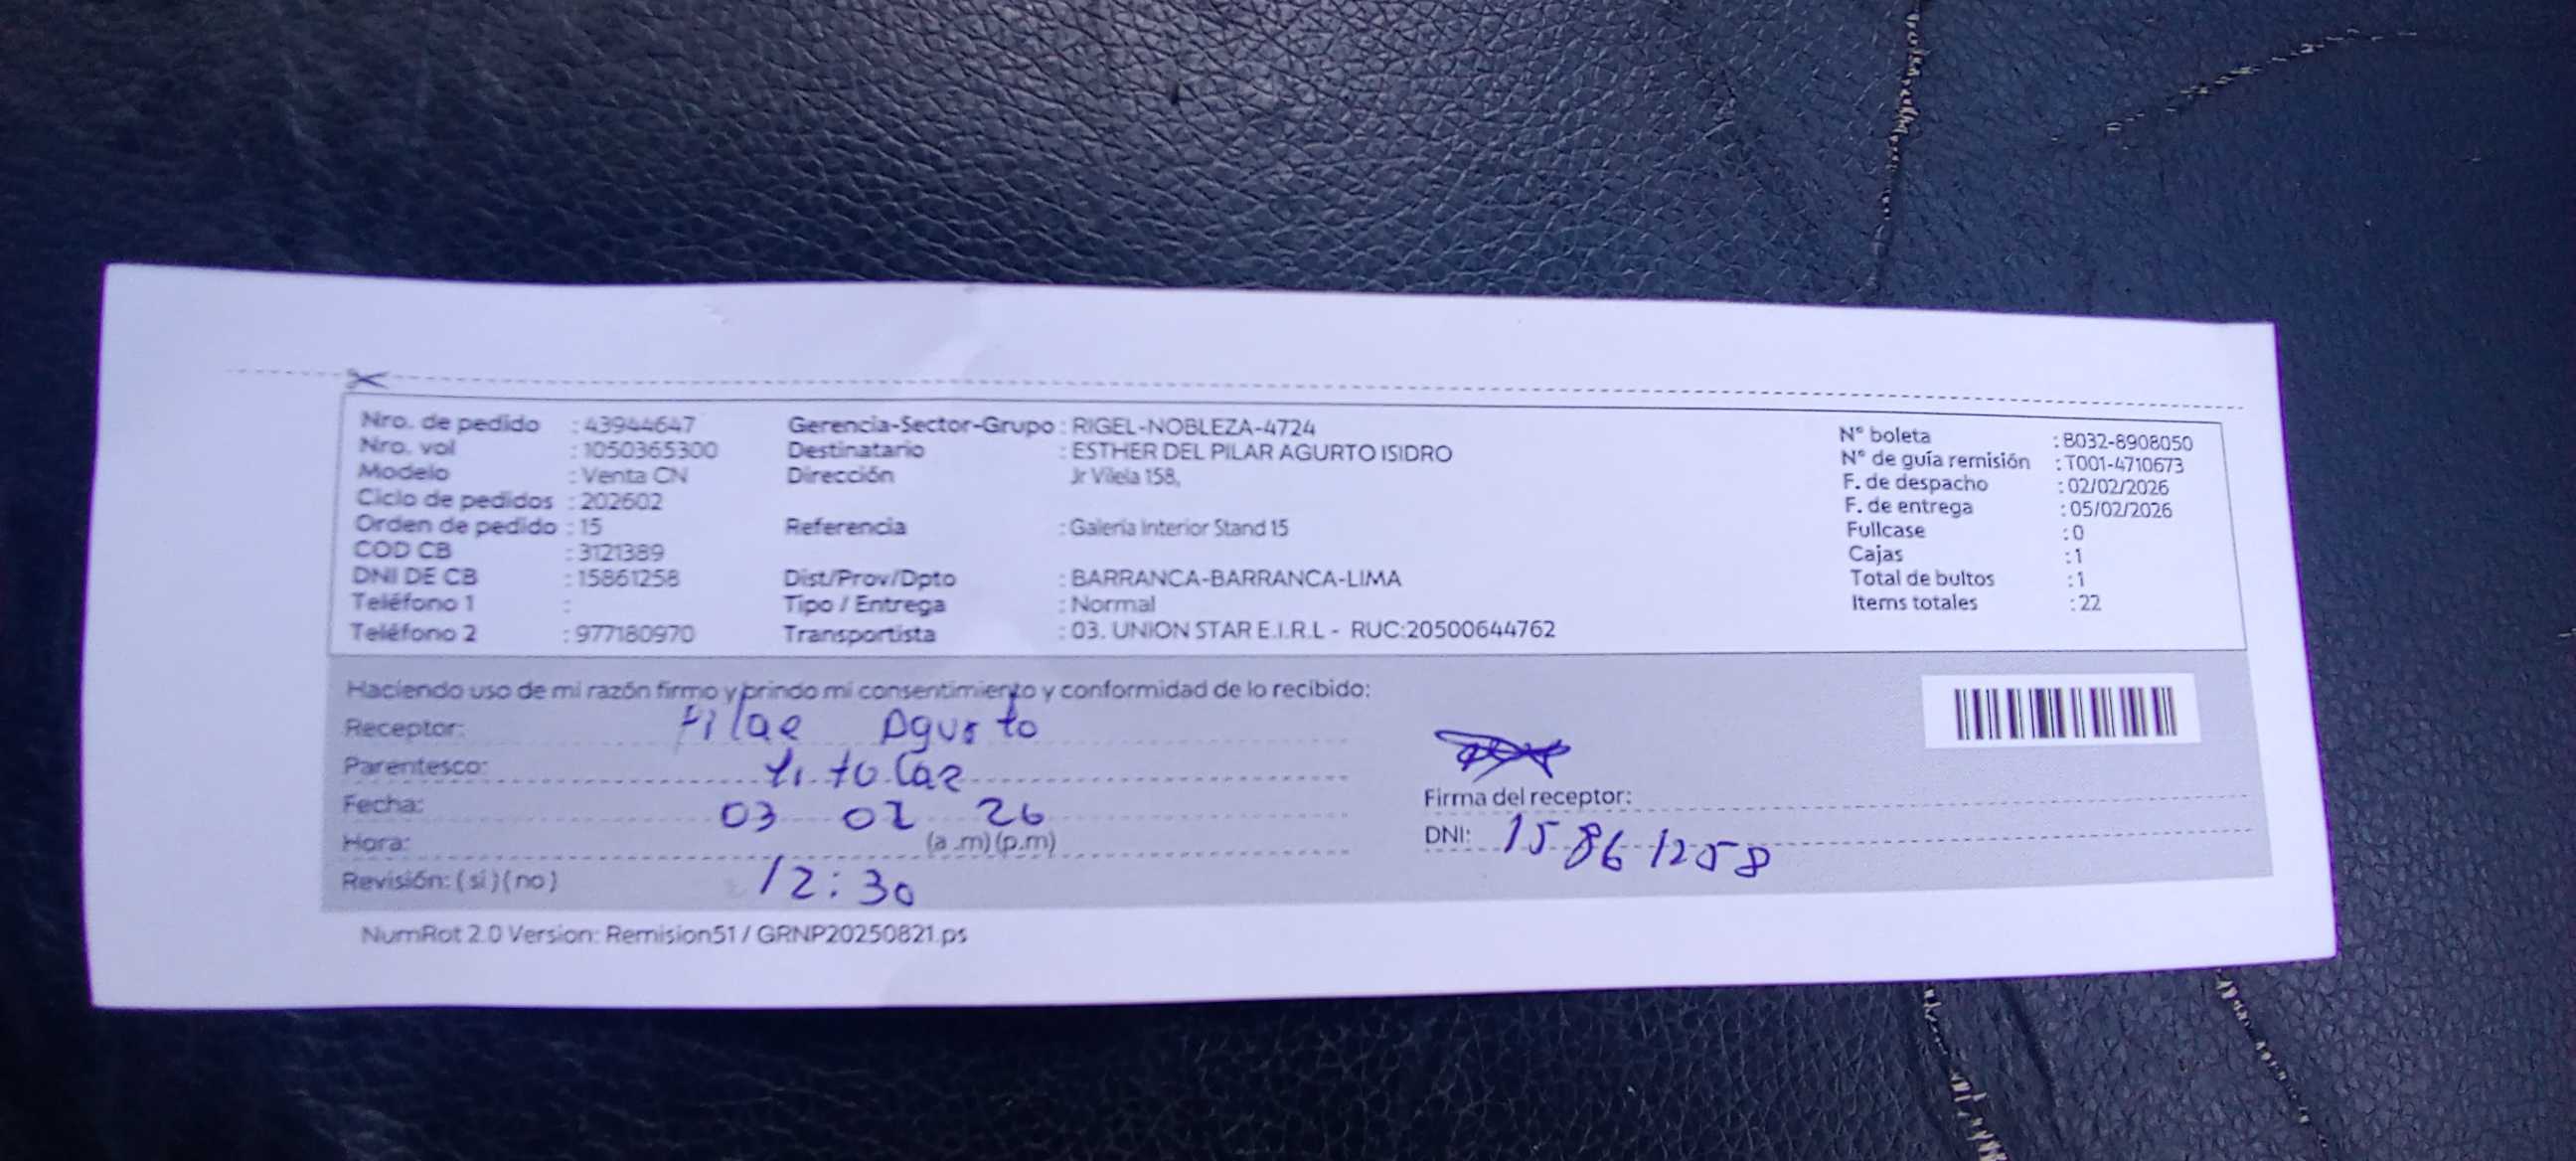 Nro. de pedido : 43944647
Nro. vol : 1050365300
Modelo : Venta CN
Ciclo de pedidos : 202602
Orden de pedido : 15
COD CB : 3121389
DNI DE CB : 15861258
Teléfono 1 :
Teléfono 2 : 977180970
Gerencia-Sector-Grupo : RIGEL-NOBLEZA-4724
Destinatario : ESTHER DEL PILAR AGURTO ISIDRO
Dirección Jr Vilela 158,
Referencia : Galería Interior Stand 15
Dist/Prov/Dpto : BARRANCA-BARRANCA-LIMA
Tipo / Entrega : Normal
Transportista : 03. UNION STAR E.I.R.L - RUC:20500644762
N° boleta : B032-8908050
N° de guía remisión : T001-4710673
F. de despacho : 02/02/2026
F. de entrega : 05/02/2026
Fullcase : 0
Cajas : 1
Total de bultos : 1
Items totales : 22
Haciendo uso de mi razón firmo y brindo mi consentimiento y conformidad de lo recibido:
Receptor: Pilar Agurto
Parentesco: titular
Fecha: 03 02 26
Hora: (a.m)(p.m)
Revisión: (si)(no) 12:30
Firma del receptor:
DNI: 15861258
NumRot 2.0 Version: Remision51 / GRNP20250821.ps